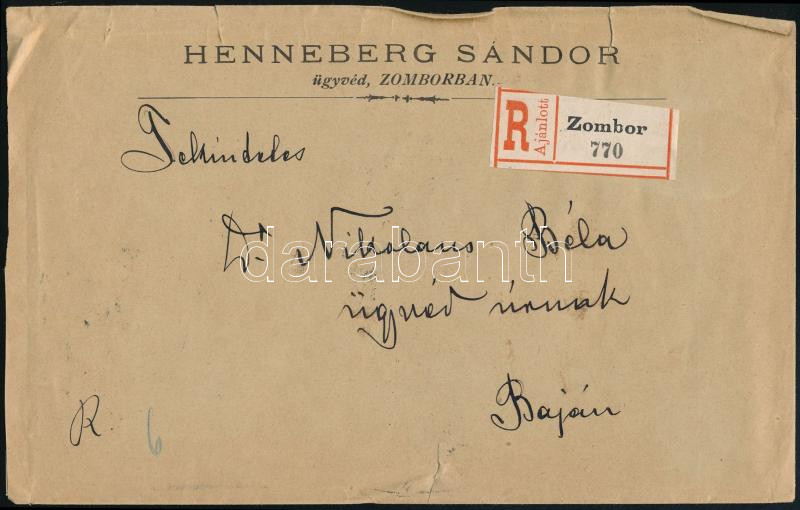 HENNEBERG SÁNDOR
ügyvéd, ZOMBORBAN.
R Ajánlott Zombor
770
Tekindeles
Dr. Nikolaus Béla
darabanth
ügyvéd úrnak
Baján
R. 6